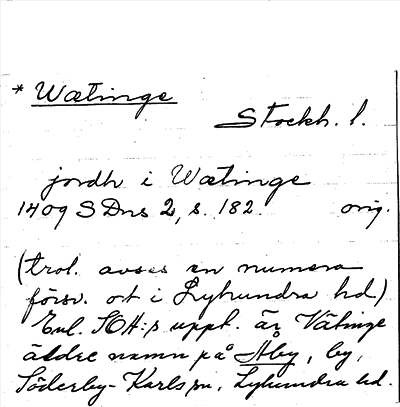 * Wætinge
Stockh. l.
jordh i Wætinge
1409 SDns 2, s. 182. orig.
(trol. avses en numera
försv. ort i Lyhundra hd.)
Enl. SOH:s uppt. är Vätinge
äldre namn på Åby, by,
Söderby-Karls sn, Lyhundra hd.